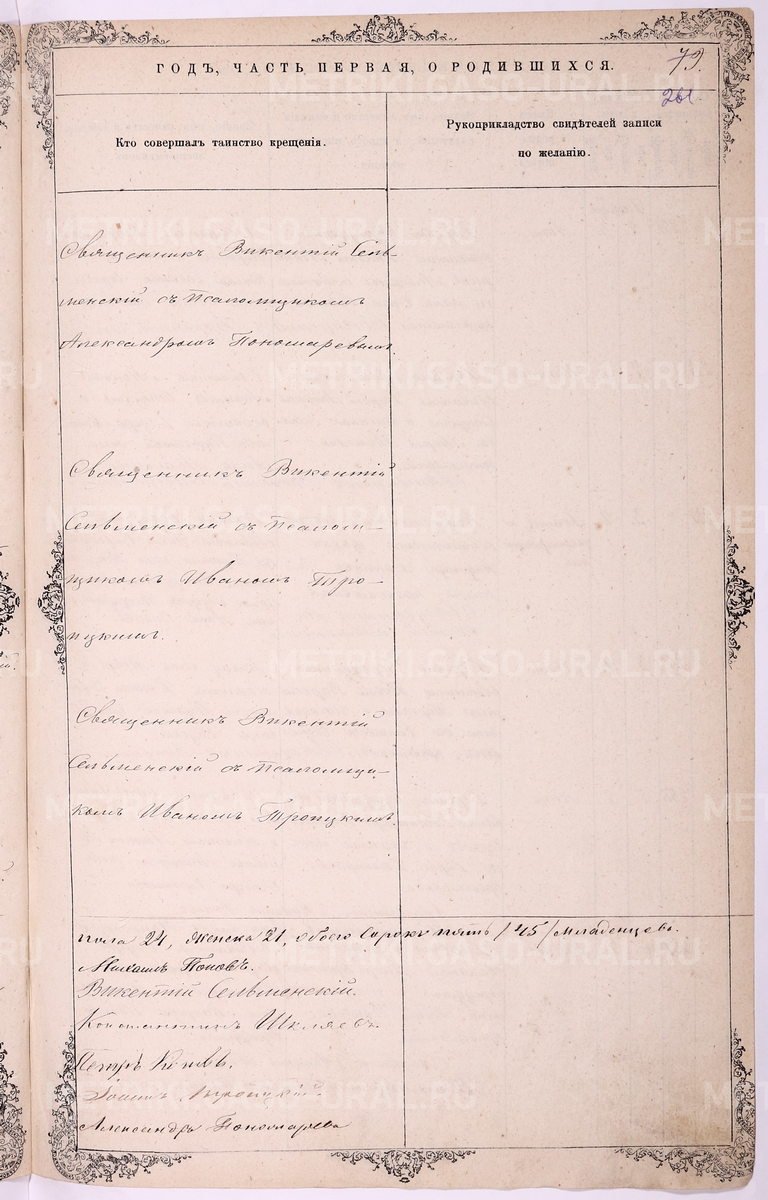 ГОДЪ, ЧАСТЬ ПЕРВАЯ, О РОДИВШИХСЯ.
79.
261.
Кто совершалъ таинство крещенія.
Рукоприкладство свидѣтелей записи
по желанію.
Священникъ Викентій Сель-
менскій съ Псаломщикомъ
Александромъ Пономаревымъ.
Священникъ Викентій
Сельменскій съ Псалом-
щикомъ Иваномъ Тро-
ицкимъ.
Священникъ Викентій
Сельменскій съ Псаломщи-
комъ Иваномъ Троицкимъ.
пола 24, женска 21, обоего сорокъ пять /45/ младенцевъ.
Михаилъ Поповъ.
Викентій Сельменскій.
Константинъ Шкляевъ.
Петръ
Іоаннъ Троицкій.
Александръ Пономаревъ
METRIKI.GASO-URAL.RU